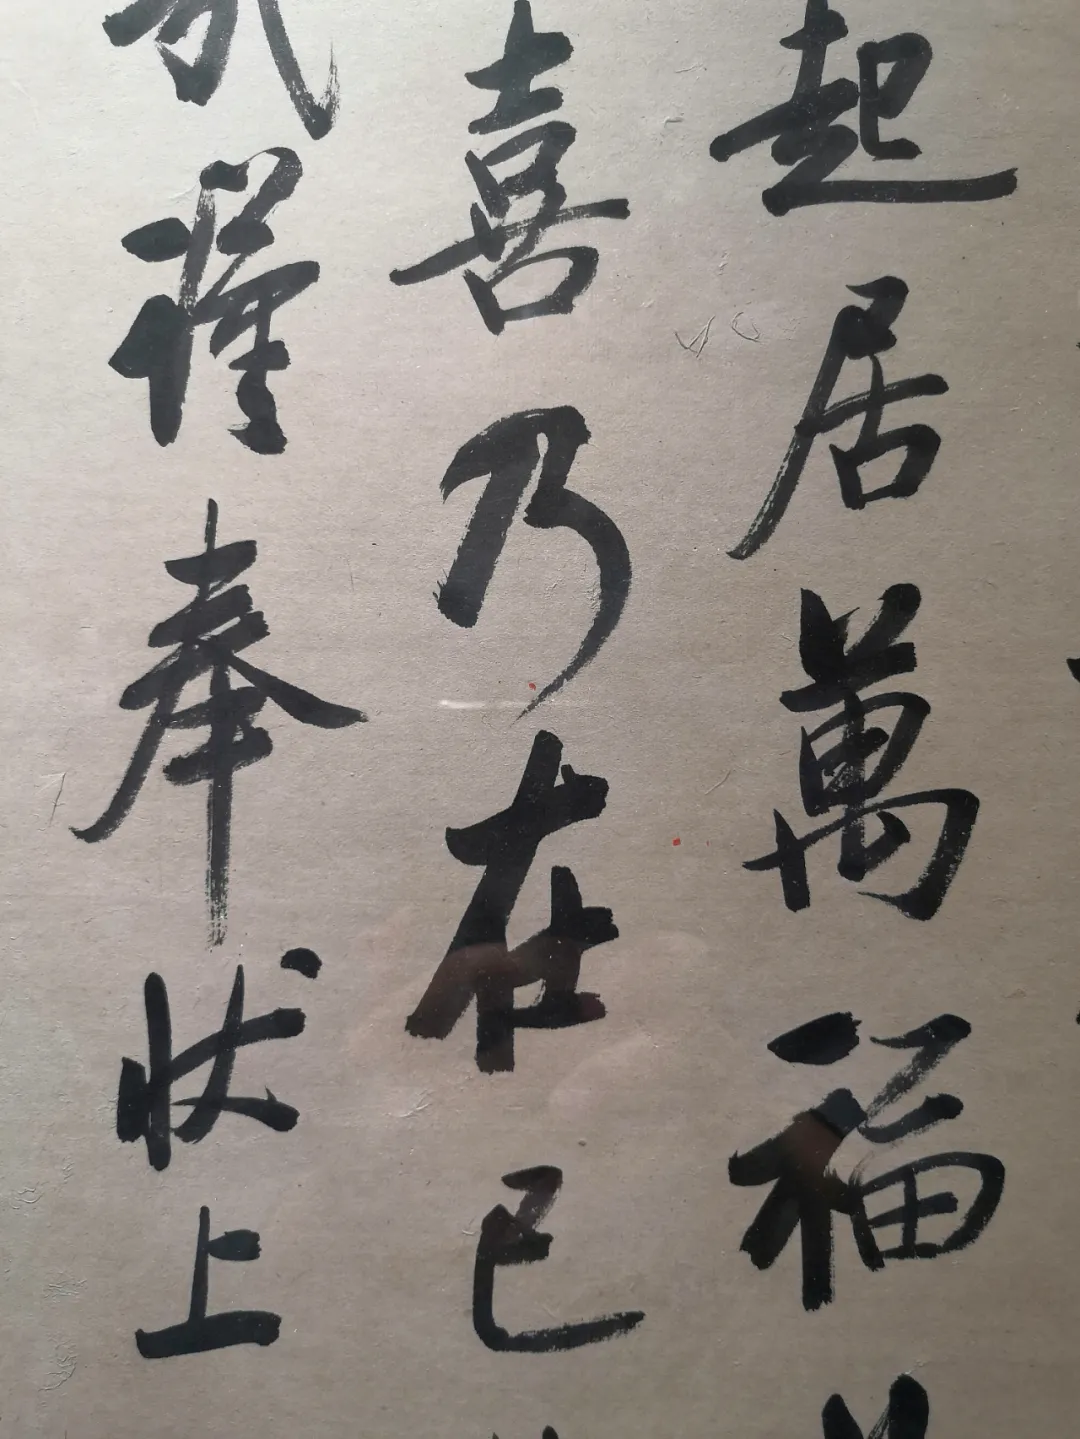 起居萬福
喜乃在已
謹奉状上